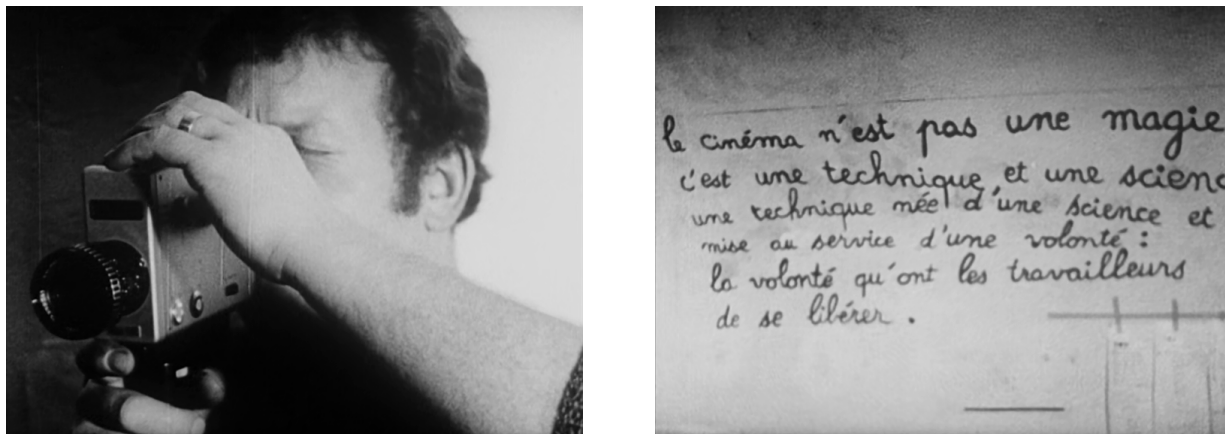 le cinéma n'est pas une magie
c'est une technique et une scienc
une technique née d'une science et
mise au service d'une volonté :
la volonté qu'ont les travailleurs
de se libérer .